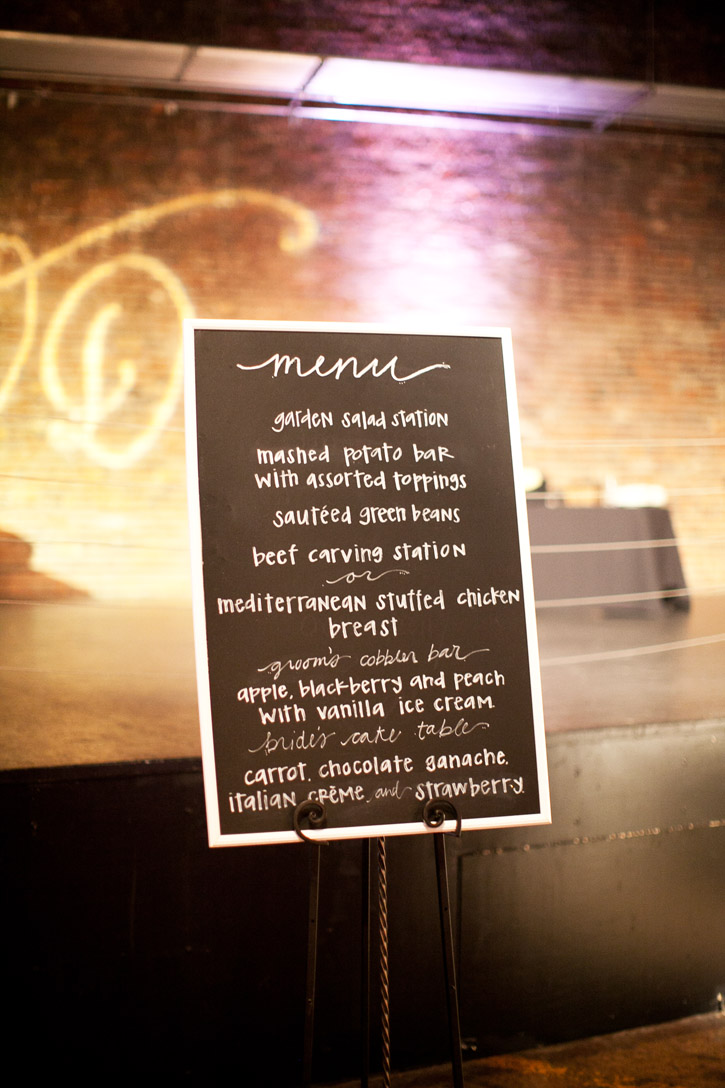 menu
garden salad station
mashed potato bar
with assorted toppings
sautéed green beans
beef carving station
or
mediterranean stuffed chicken
breast
groom's cobbler bar
apple, blackberry and peach
with vanilla ice cream
bride's cake table
carrot, chocolate ganache,
italian crème and strawberry